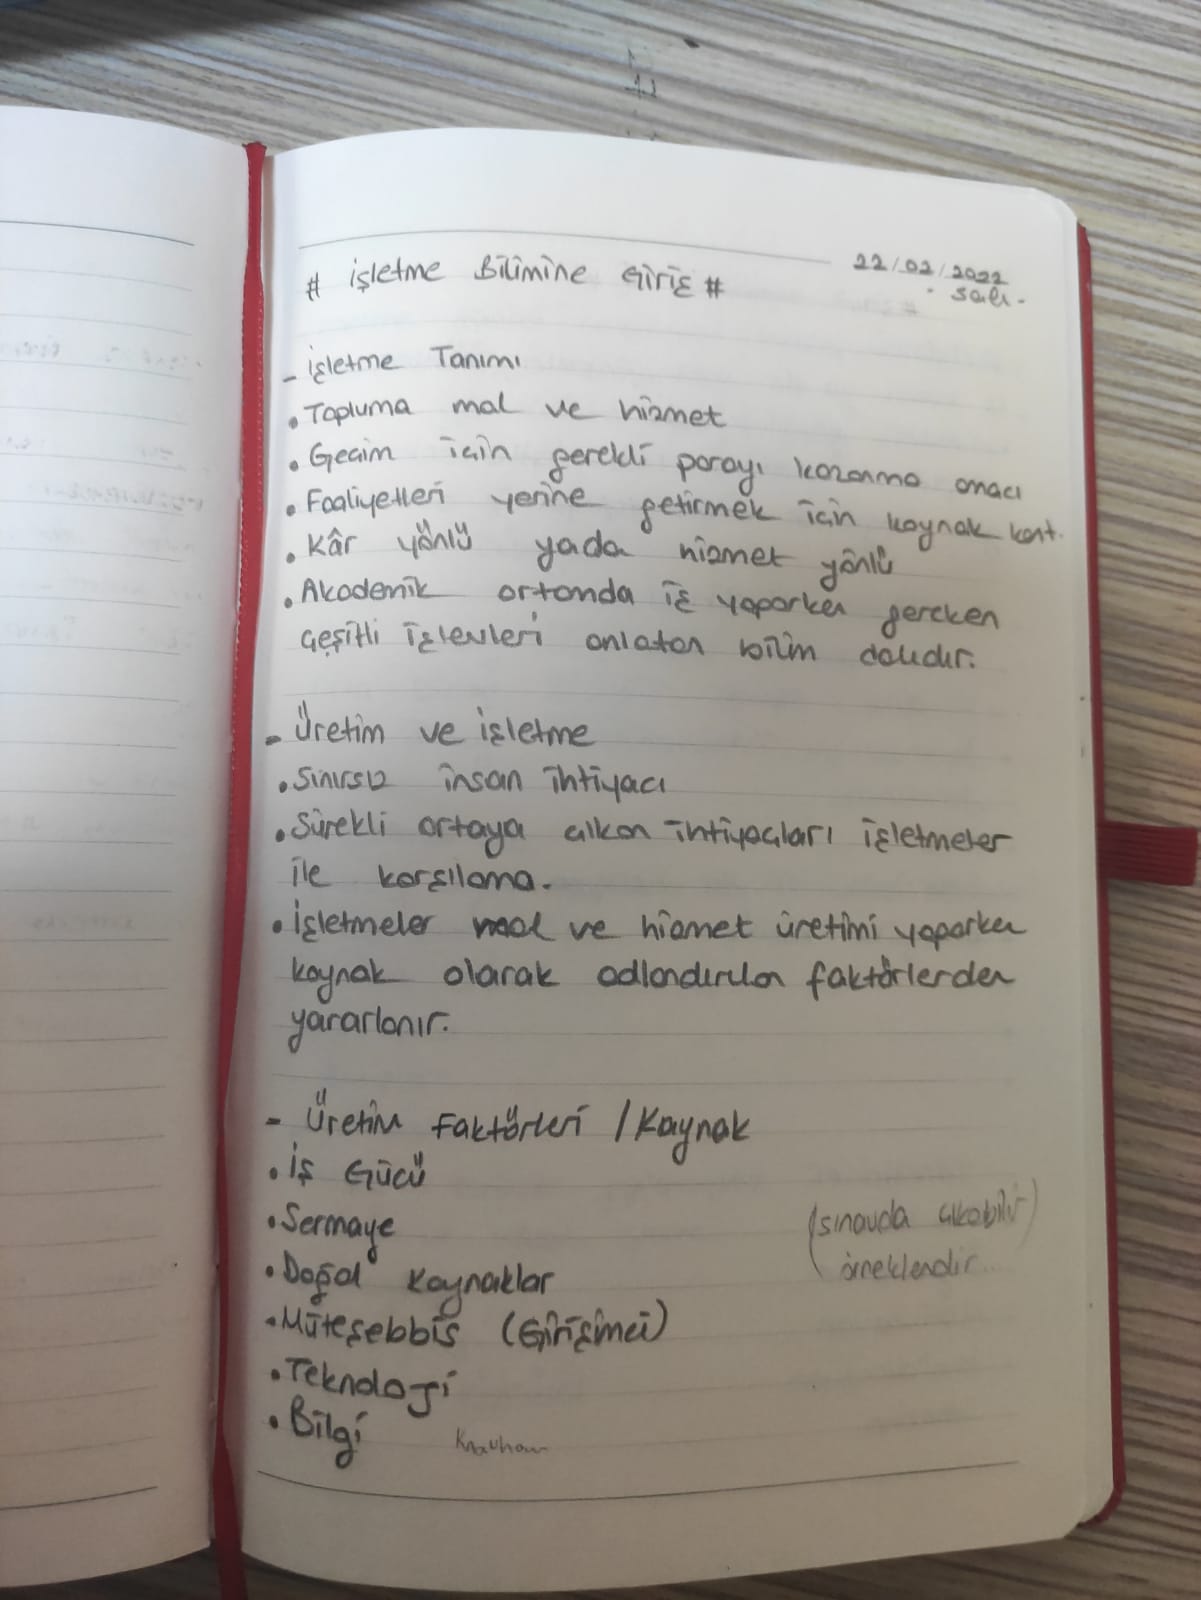 # İşletme Bilimine Giriş #
22/02/2022
- Salı -
- İşletme Tanımı
• Topluma mal ve hizmet
• Geçim için gerekli parayı kazanma amacı
• Faaliyetleri yerine getirmek için kaynak kont.
• Kâr yönlü yada hizmet yönlü
• Akademik ortamda iş yaparken gereken
çeşitli işlevleri anlatan bilim dalıdır.
- Üretim ve işletme
• Sınırsız insan ihtiyacı
• Sürekli ortaya çıkan ihtiyaçları işletmeler
ile karşılama.
• İşletmeler mal ve hizmet üretimi yaparken
kaynak olarak adlandırılan faktörlerden
yararlanır.
- Üretim Faktörleri / Kaynak
• İş Gücü
• Sermaye
(sınavda çıkabilir)
• Doğal Kaynaklar
örneklendir...
• Müteşebbis (Girişimci)
• Teknoloji
• Bilgi Knowhow